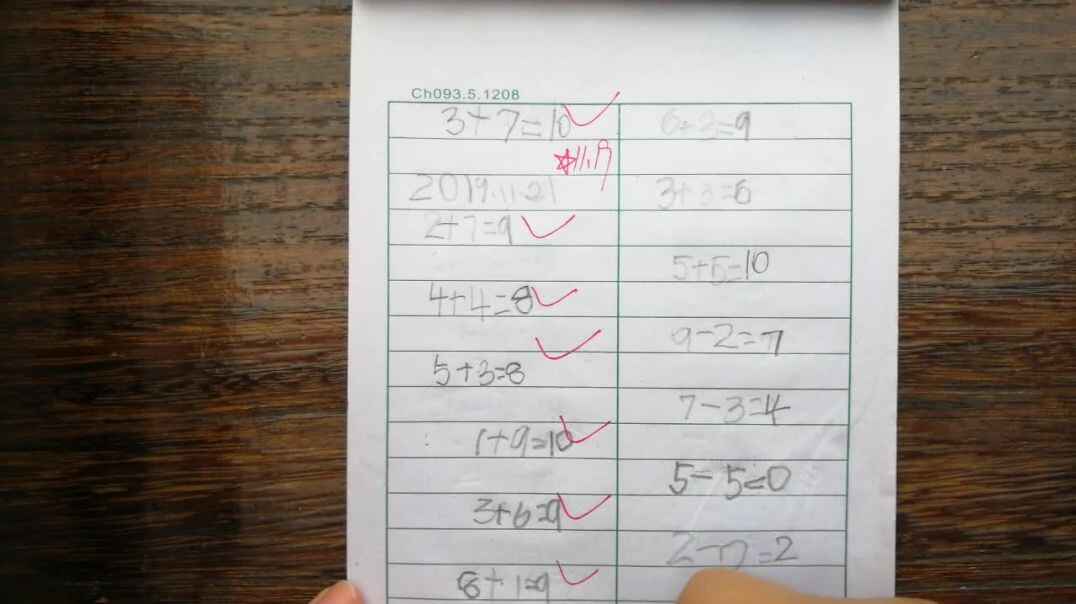 Ch093.5.1208
3+7=10
11.19
2019.11.21
2+7=9
4+4=8
5+3=8
1+9=10
3+6=9
8+1=9
6+3=9
3+3=6
5+5=10
9-2=7
7-3=4
5-5=0
2-0=2